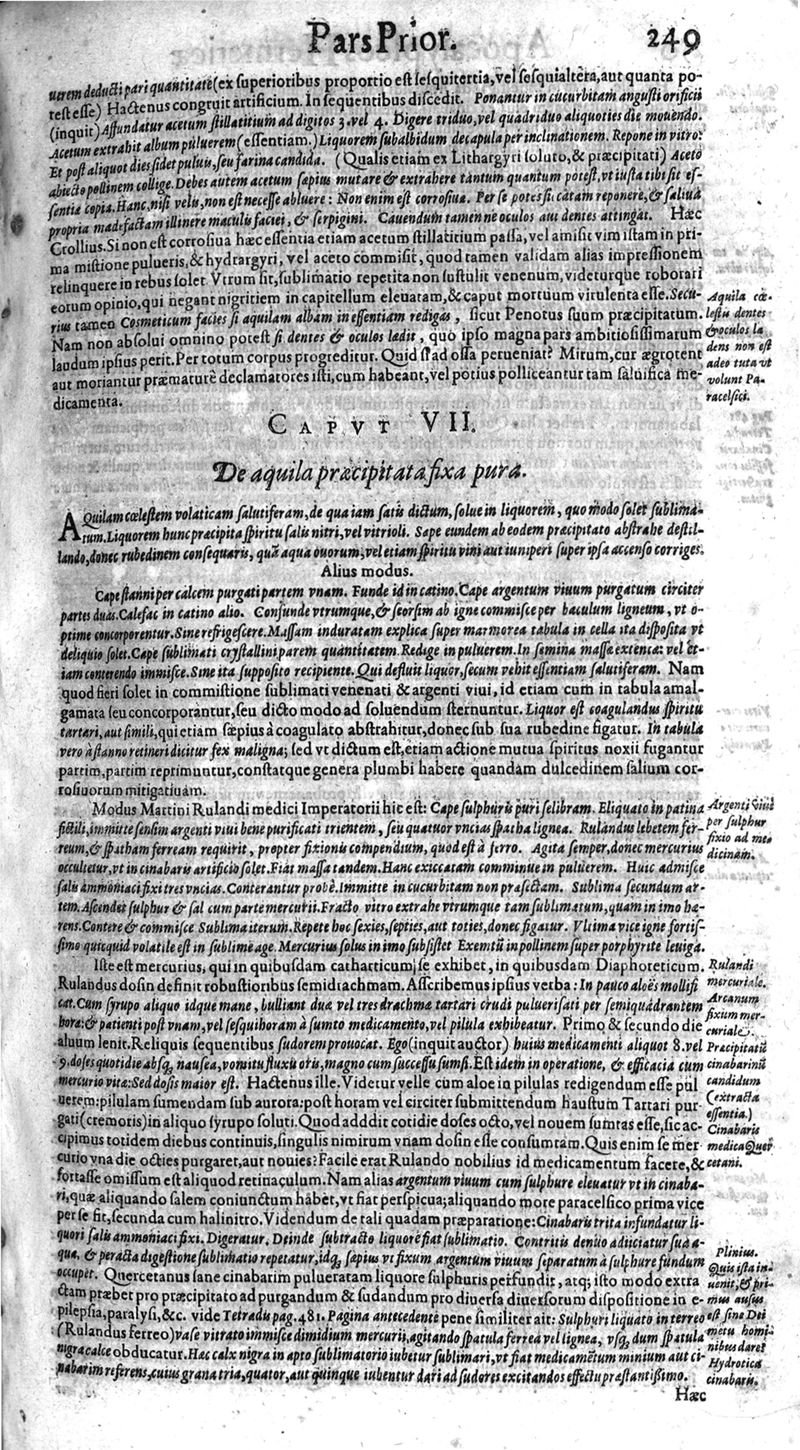 Pars Prior. 249
uerem deducti pari quantitate (ex superioribus proportio est sesquitertia, vel sesquialtera, aut quanta po-
test esse) Hactenus congruit artificium. In sequentibus discedit. Ponantur in cucurbitam angusti orificii
(inquit) Affundatur acetum stillatitium ad digitos 3. vel 4. Digere triduo, vel quadriduo aliquoties die mouendo.
Acetum extrahit album puluerem (essentiam.) Liquorem subalbidum decapula per inclinationem. Repone in vitro:
Et post aliquot dies sidet puluis, seu farina candida. (Qualis etiam ex Lithargyri soluto, & præcipitati) Aceto
abiecto pollinem collige. Debes autem acetum sæpius mutare & extrahere tantum quantum potest, vt iusta tibi sit es-
sentiæ copia. Hanc, nisi velis, non est necesse abluere: Non enim est corrosiua. Per se potes siccatam reponere, & saliua
propria madefactam illinere maculis faciei, & serpigini. Cauendum tamen ne oculos aut dentes attingat. Hæc
Crollius. Si non est corrosiua hæc essentia etiam acetum stillatitium passa, vel amisit vim istam in pri-
ma mistione pulueris, & hydrargyri, vel aceto commisit, quod tamen validam alias impressionem
relinquere in rebus solet. Vtrum sit, sublimatio repetita non sustulit venenum, videturque roborari
eorum opinio, qui negant nigritiem in capitellum eleuatam, & caput mortuum virulenta esse. Secu-
rius tamen Cosmeticum facies si aquilam albam in essentiam redigas, sicut Penotus suum præcipitatum.
Nam non absolui omnino potest si dentes & oculos lædit, quo ipso magna pars ambitiosissimarum
laudum ipsius perit. Per totum corpus progreditur. Quid si ad ossa perueniat? Mirum, cur ægrotent
aut moriantur præmaturè declamatores isti, cum habeant, vel potius polliceantur tam saluifica me-
dicamenta.
Aquila cœ-
lestis dentes
& oculos læ
dens non est
adeo tuta vt
volunt Pa-
racelsici.
CAPVT VII.
De aquila præcipitata fixa pura.
AQuilam cœlestem volaticam salutiferam, de qua iam satis dictum, solue in liquorem, quo modo solet sublima-
tum. Liquorem hunc præcipita spiritu salis nitri, vel vitrioli. Sæpe eundem ab eodem præcipitato abstrahe destil-
lando, donec rubedinem consequaris, quã aqua ouorum, vel etiam spiritu vini aut iuniperi super ipsa accenso corriges.
Alius modus.
Cape stanni per calcem purgati partem vnam. Funde id in catino. Cape argentum viuum purgatum circiter
partes duas. Calefac in catino alio. Confunde vtrumque, & seorsim ab igne commisce per baculum ligneum, vt o-
ptime concorporentur. Sine refrigescere. Massam induratam explica super marmorea tabula in cella ita disposita vt
deliquio solet. Cape sublimati crystallini parem quantitatem. Redige in puluerem. In semina massæ extentæ: vel et-
iam conterendo immisce. Sine ita supposito recipiente. Qui defluit liquor, secum vehit essentiam salutiferam. Nam
quod fieri solet in commistione sublimati venenati & argenti viui, id etiam cum in tabula amal-
gamata seu concorporantur, seu dicto modo ad soluendum sternuntur. Liquor est coagulandus spiritu
tartari, aut simili, qui etiam sæpius à coagulato abstrahitur, donec sub sua rubedine figatur. In tabula
vero à stanno retineri dicitur fex maligna; sed vt dictum est, etiam actione mutua spiritus noxii fugantur
partim, partim reprimuntur, constatque genera plumbi habere quandam dulcedinem salium cor-
rosiuorum mitigatiuam.
Modus Martini Rulandi medici Imperatorii hic est: Cape sulphuris puri selibram. Eliquato in patina
fictili, immitte sensim argenti viui bene purificati trientem, seu quatuor vncias spatha lignea. Rulandus lebetem fer-
reum, & spatham ferream requirit, propter fixionis compendium, quod est à ferro. Agita semper, donec mercurius
occultetur, vt in cinabaris artificio solet. Fiat massa tandem. Hanc exiccatam comminue in puluerem. Huic admisce
salis ammoniaci fixi tres vncias. Conterantur probè. Immitte in cucurbitam non præsectam. Sublima secundum ar-
tem. Ascendet sulphur & sal cum parte mercurii. Fracto vitro extrahe vtrumque tam sublimatum, quam in imo hæ-
rens. Contere & commisce Sublima iterum. Repete hoc sexies, septies, aut toties, donec figatur. Vltima vice igne fortis-
simo quicquid volatile est in sublime age. Mercurius solus in imo subsistet Exemtũ in pollinem super porphyrite leuiga.
Argenti viui
per sulphur
fixio ad me
dicinam.
Iste est mercurius, qui in quibusdam catharticum se exhibet, in quibusdam Diaphoreticum.
Rulandus dosin definit robustioribus semidrachmam. Ascribemus ipsius verba: In pauco aloës mollifi
cat. Cum syrupo aliquo idque mane, bulliant duæ vel tres drachmæ tartari crudi puluerisati per semiquadrantem
horæ: & patienti post vnam, vel sesquihoram à sumto medicamento, vel pilula exhibeatur. Primo & secundo die
aluum lenit. Reliquis sequentibus sudorem prouocat. Ego (inquit auctor) huius medicamenti aliquot 8. vel
9. doses quotidie absq; nausea, vomitu fluxu oris, magno cum successu sumsi. Est idem in operatione, & efficacia cum
mercurio vitæ: Sed dosis maior est. Hactenus ille. Videtur velle cum aloe in pilulas redigendum esse pul
uerem: pilulam sumendam sub aurora: post horam vel circiter submittendum haustum Tartari pur-
gati (cremoris) in aliquo syrupo soluti. Quod adddit cotidie doses octo, vel nouem sumtas esse, sic ac-
cipimus totidem diebus continuis, singulis nimirum vnam dosin esse consumtam. Quis enim se mer-
curio vna die octies purgaret, aut nouies? Facile erat Rulando nobilius id medicamentum facere, &
fortasse omissum est aliquod retinaculum. Nam alias argentum viuum cum sulphure eleuatur vt in cinaba-
ri, quæ aliquando salem coniunctum habet, vt fiat perspicua; aliquando more paracelsico prima vice
per se fit, secunda cum halinitro. Videndum de tali quadam præparatione: Cinabaris trita infundatur li-
quori salis ammoniaci fixi. Digeratur. Deinde subtracto liquore fiat sublimatio. Contritis denuo adiiciatur sua a-
qua, & peracta digestione sublimatio repetatur, idq; sæpius vt fixum argentum viuum separatum à sulphure fundum
occupet. Quercetanus sane cinabarim pulueratam liquore sulphuris perfundit, atq; isto modo extra
ctam præbet pro præcipitato ad purgandum & sudandum pro diuersa diuersorum dispositione in e-
pilepsia, paralysi, &c. vide Tetradũ pag. 481. Pagina antecedente pene similiter ait: Sulphuri liquato in terreo
(Rulandus ferreo) vase vitrato immisce dimidium mercurii, agitando spatula ferrea vel lignea, vsq; dum spatula
nigra calce obducatur. Hæc calx nigra in apto sublimatorio iubetur sublimari, vt fiat medicamẽtum minium aut ci-
nabarim referens, cuius grana tria, quator, aut quinque iubentur dari ad sudores excitandos effectu præstantissimo.
Rulandi
mercuriale.
Arcanum
fixum mer-
curiale.
Præcipitatũ
cinabarinũ
candidum
(extracta
essentia.)
Cinabaris
medica Quer
cetani.
Plinius.
Quis ista in-
uenit, & pri-
mus ausus
est sine Dei
metu homi-
nibus daret
Hydrotica
cinabaris.
Hæc